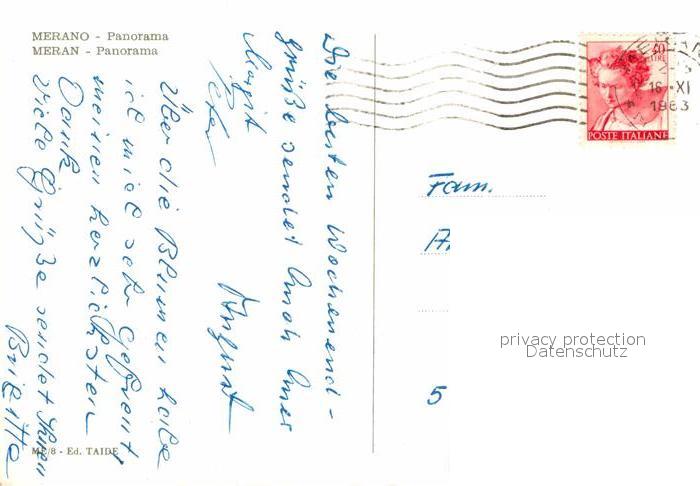 MERANO - Panorama
MERAN - Panorama
Die besten Wochenend-
grüße sendet Euch Eure
August
Über die Blumen habe
ich mich sehr gefreut
meinen herzlichsten
Dank
Viele Grüße sendet Ihnen
Brigitte
ME/8 - Ed. TAIDE
40
LIRE
POSTE ITALIANE
16·XI
1963
Fam.
A.
5
privacy protection
Datenschutz